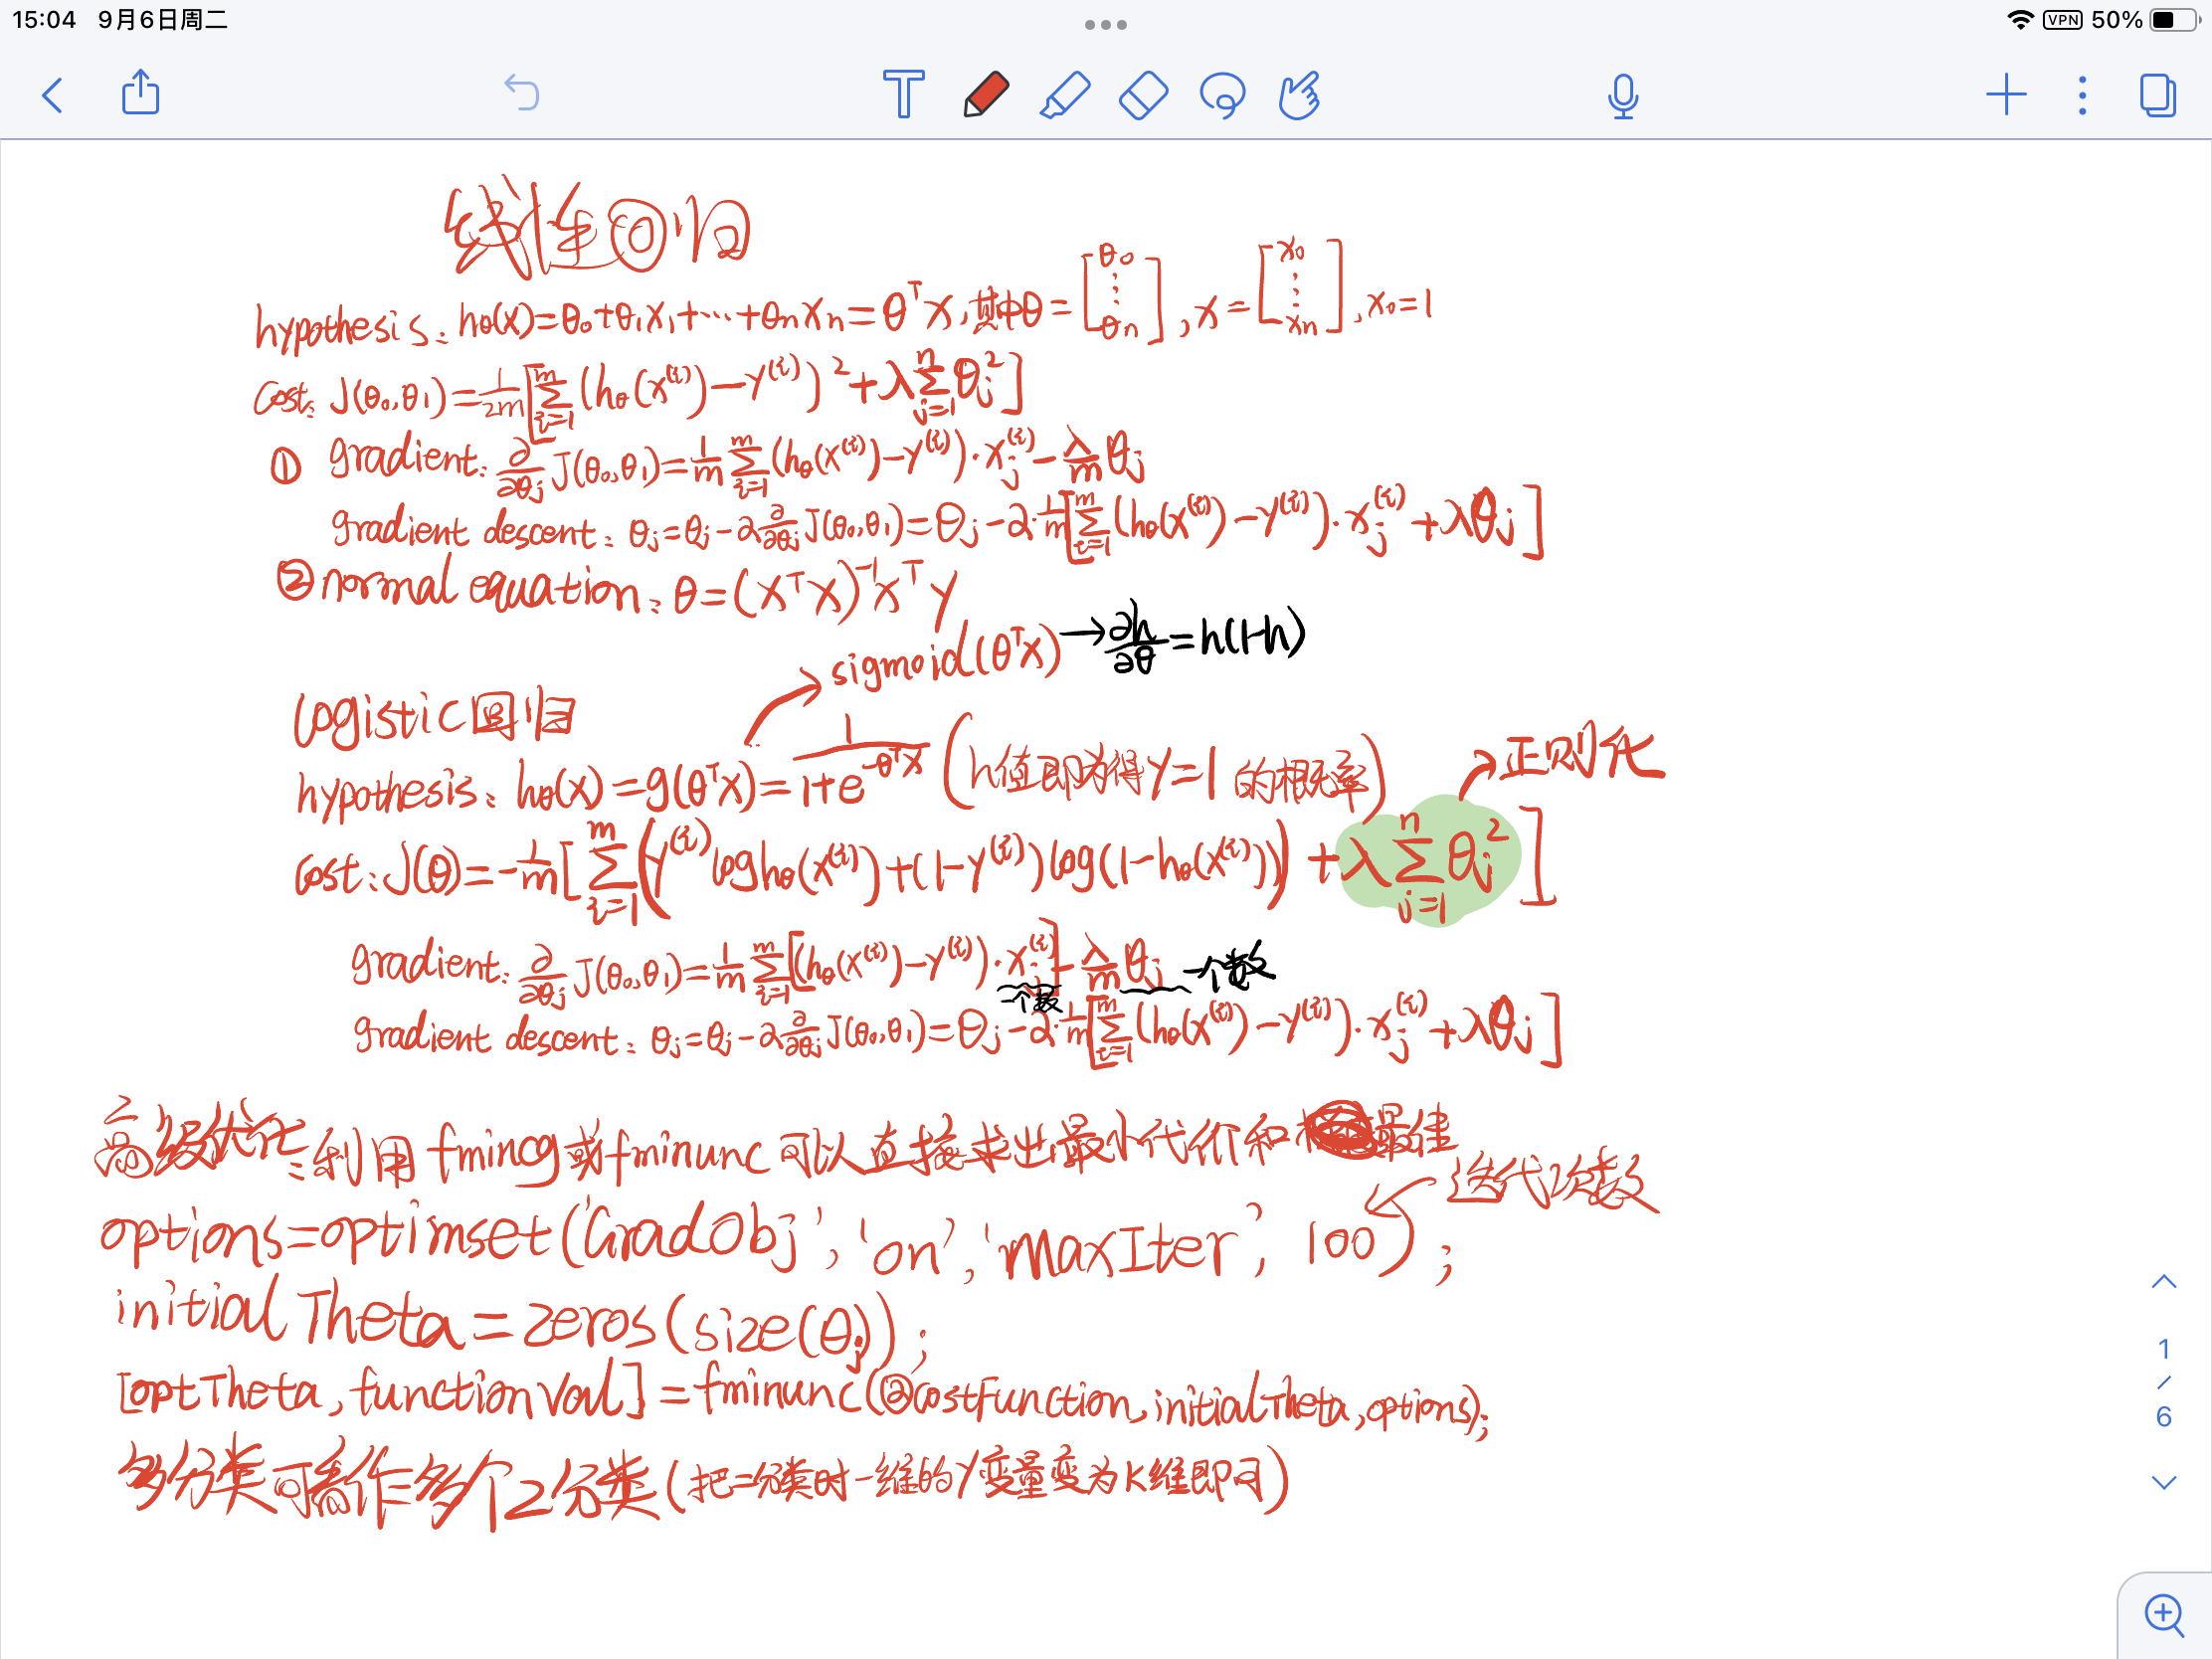 15:04 9月6日周二 VPN 50%
线性回归
hypothesis: hθ(x)=θ₀+θ₁x₁+⋯+θnxn=θᵀX, 其中θ=[θ₀ ⋮ θn], x=[x₀ ⋮ xn], x₀=1
cost: J(θ₀,θ₁)=1/2m[∑_{i=1}^{m}(hθ(x⁽ⁱ⁾)-y⁽ⁱ⁾)²+λ∑_{j=1}^{n}θj²]
① gradient: ∂/∂θj J(θ₀,θ₁)=1/m ∑_{i=1}^{m}(hθ(x⁽ⁱ⁾)-y⁽ⁱ⁾)·xj⁽ⁱ⁾-λ/m θj
gradient descent: θj=θj-α ∂/∂θj J(θ₀,θ₁)=θj-α·1/m[∑_{i=1}^{m}(hθ(x⁽ⁱ⁾)-y⁽ⁱ⁾)·xj⁽ⁱ⁾+λθj]
② normal equation: θ=(XᵀX)⁻¹XᵀY
sigmoid(θᵀX)→∂h/∂θ=h(1-h)
logistic回归
hypothesis: hθ(x)=g(θᵀX)=1/(1+e^{-θᵀX}) (h值即为得y=1的概率) 正则化
cost: J(θ)=-1/m[∑_{i=1}^{m}(y⁽ⁱ⁾log hθ(x⁽ⁱ⁾)+(1-y⁽ⁱ⁾)log(1-hθ(x⁽ⁱ⁾)))+λ∑_{j=1}^{n}θj²]
gradient: ∂/∂θj J(θ₀,θ₁)=1/m ∑_{i=1}^{m}[(hθ(x⁽ⁱ⁾)-y⁽ⁱ⁾)·xj⁽ⁱ⁾]-λ/m θj 一个数
一个数
gradient descent: θj=θj-α ∂/∂θj J(θ₀,θ₁)=θj-α·1/m[∑_{i=1}^{m}(hθ(x⁽ⁱ⁾)-y⁽ⁱ⁾)·xj⁽ⁱ⁾+λθj]
高级优化:利用fmincg或fminunc可以直接求出最小代价和最佳
迭代次数
options=optimset('GradObj','on','MaxIter',100);
initialTheta=zeros(size(θj));
[optTheta,functionVal]=fminunc(@costFunction,initialTheta,options);
多分类可看作多个2分类(把二分类时一维的y变量变为K维即可)
1
/
6